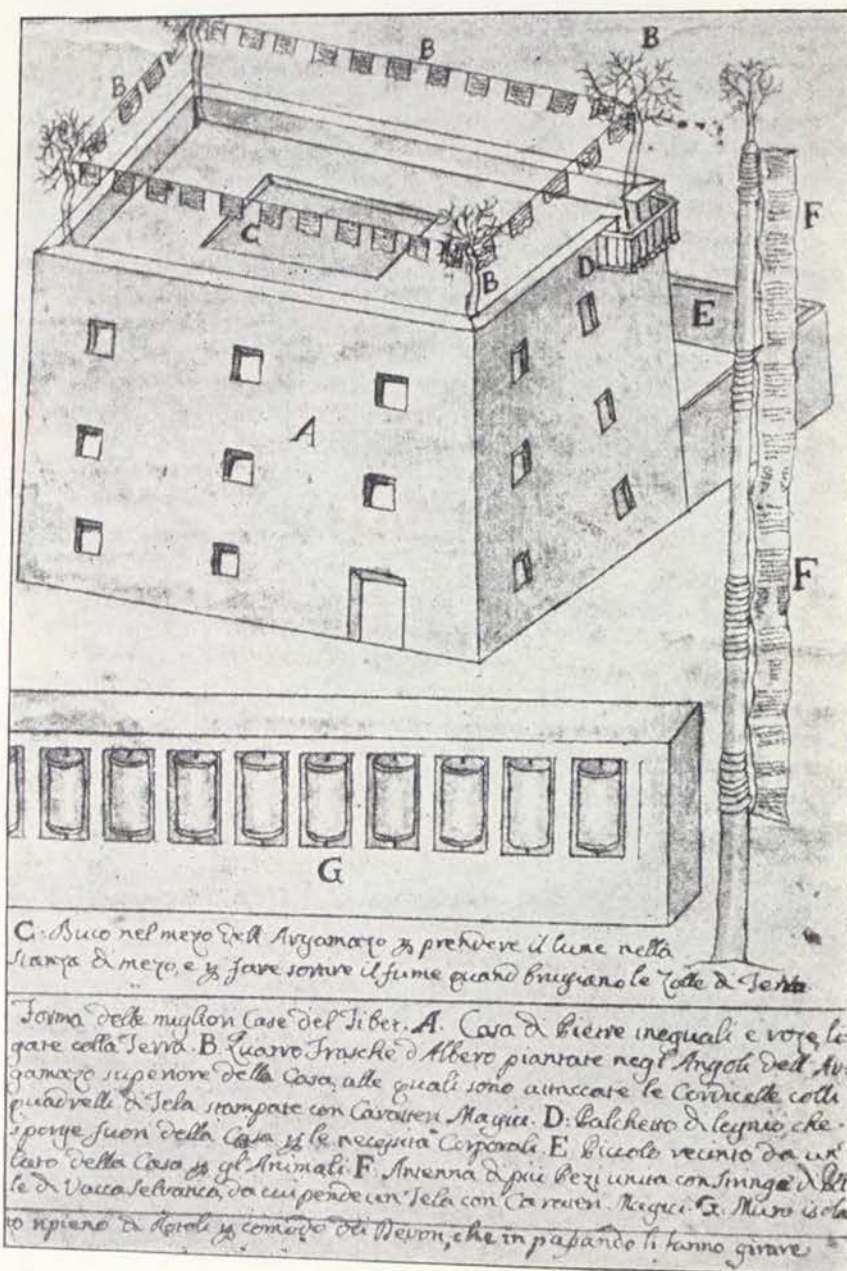 B
B
B
B
F
C
D
E
A
B
F
G
C. Buco nel mezo dell Argamazo p prendere il lume nella
stanza di mezo, e p fare sortire il fume quand brugiano le Zolle di Terra
Forma delle migliori Case del Tibet. A. Casa di Pietre ineguali e roze, li-
gate colla Terra. B. Quatro Frasche d'Albero piantate negl' Angoli dell' Ar-
gamazo superiore della Casa, alle quali sono attaccate le Cordicelle colli
quadrelli di Tela stampate con Caratteri Magici. D: Palchetto di legnio, che
sporge fuori della Casa p le necessità Corporali. E Piccolo recinto da un
lato della Casa p gl' Animali. F: Antenna di più Pezi unita con stringe di Pel-
le di Vacca selvatica, da cui pende un Tela con Caratteri Magici. G. Muro isola
to ripieno di Rotoli p comodo dei Devoti, che in passando li fanno girare